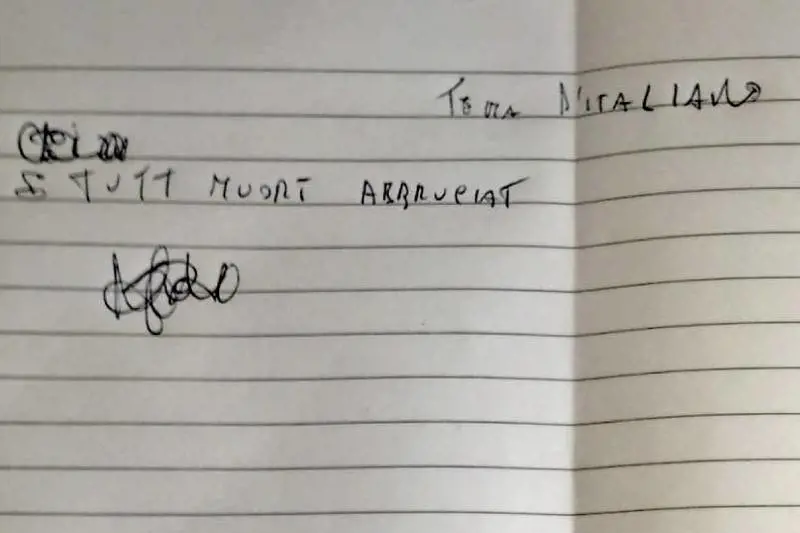 Tema D'ITALIANO
S TUTT MUORT ABBRUCIAT